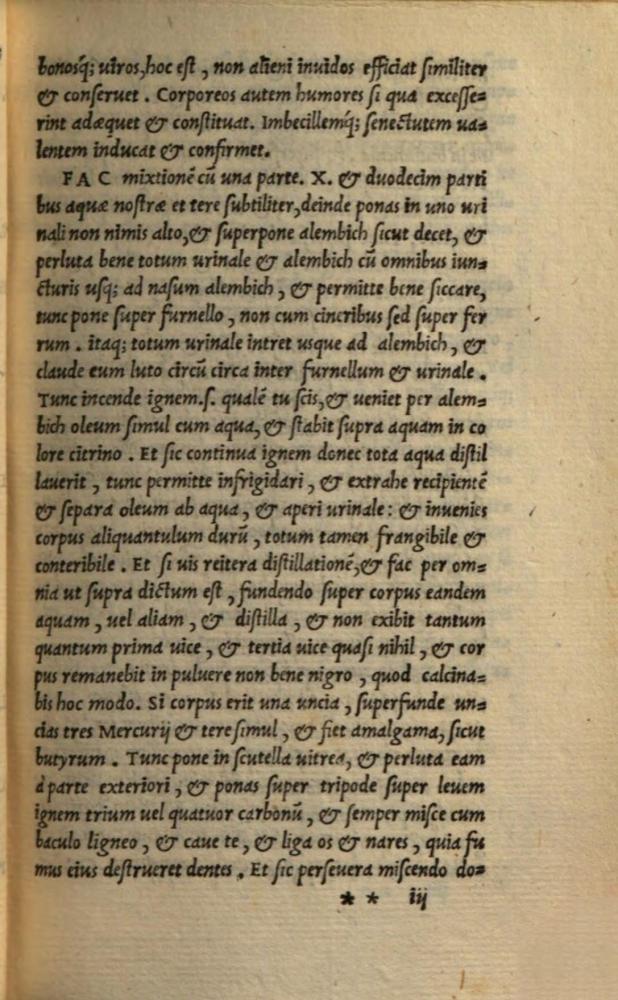 bonosq́; uiros, hoc est, non alieni inuidos efficiat similiter
& conseruet. Corporeos autem humores si qua excesse⸗
rint adæquet & constituat. Imbecillemq́; senectutem ua⸗
lentem inducat & confirmet.
FAC mixtionē cū una parte. X. & duodecim parti
bus aquæ nostræ et tere subtiliter, deinde ponas in uno uri
nali non nimis alto, & superpone alembich sicut decet, &
perluta bene totum urinale & alembich cū omnibus iun⸗
cturis usq; ad nasum alembich, & permitte bene siccare,
tunc pone super furnello, non cum cineribus sed super fer
rum. itaq; totum urinale intret usque ad alembich, &
claude eum luto circū circa inter furnellum & urinale.
Tunc incende ignem.s. qualē tu scis, & ueniet per alem⸗
bich oleum simul cum aqua, & stabit supra aquam in co
lore citrino. Et sic continua ignem donec tota aqua distil
lauerit, tunc permitte infrigidari, & extrahe recipientē
& separa oleum ab aqua, & aperi urinale: & inuenies
corpus aliquantulum durū, totum tamen frangibile &
conteribile. Et si uis reitera distillationē, & fac per om⸗
nia ut supra dictum est, fundendo super corpus eandem
aquam, uel aliam, & distilla, & non exibit tantum
quantum prima uice, & tertia uice quasi nihil, & cor
pus remanebit in puluere non bene nigro, quod calcina⸗
bis hoc modo. Si corpus erit una uncia, superfunde un⸗
cias tres Mercurij & tere simul, & fiet amalgama, sicut
butyrum. Tunc pone in scutella uitrea, & perluta eam
à parte exteriori, & ponas super tripode super leuem
ignem trium uel quatuor carbonū, & semper misce cum
baculo ligneo, & caue te, & liga os & nares, quia fu
mus eius destrueret dentes. Et sic perseuera miscendo do⸗
* * iij